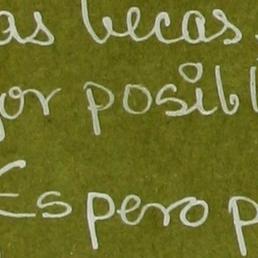 as becas.
or posibl
Espero p